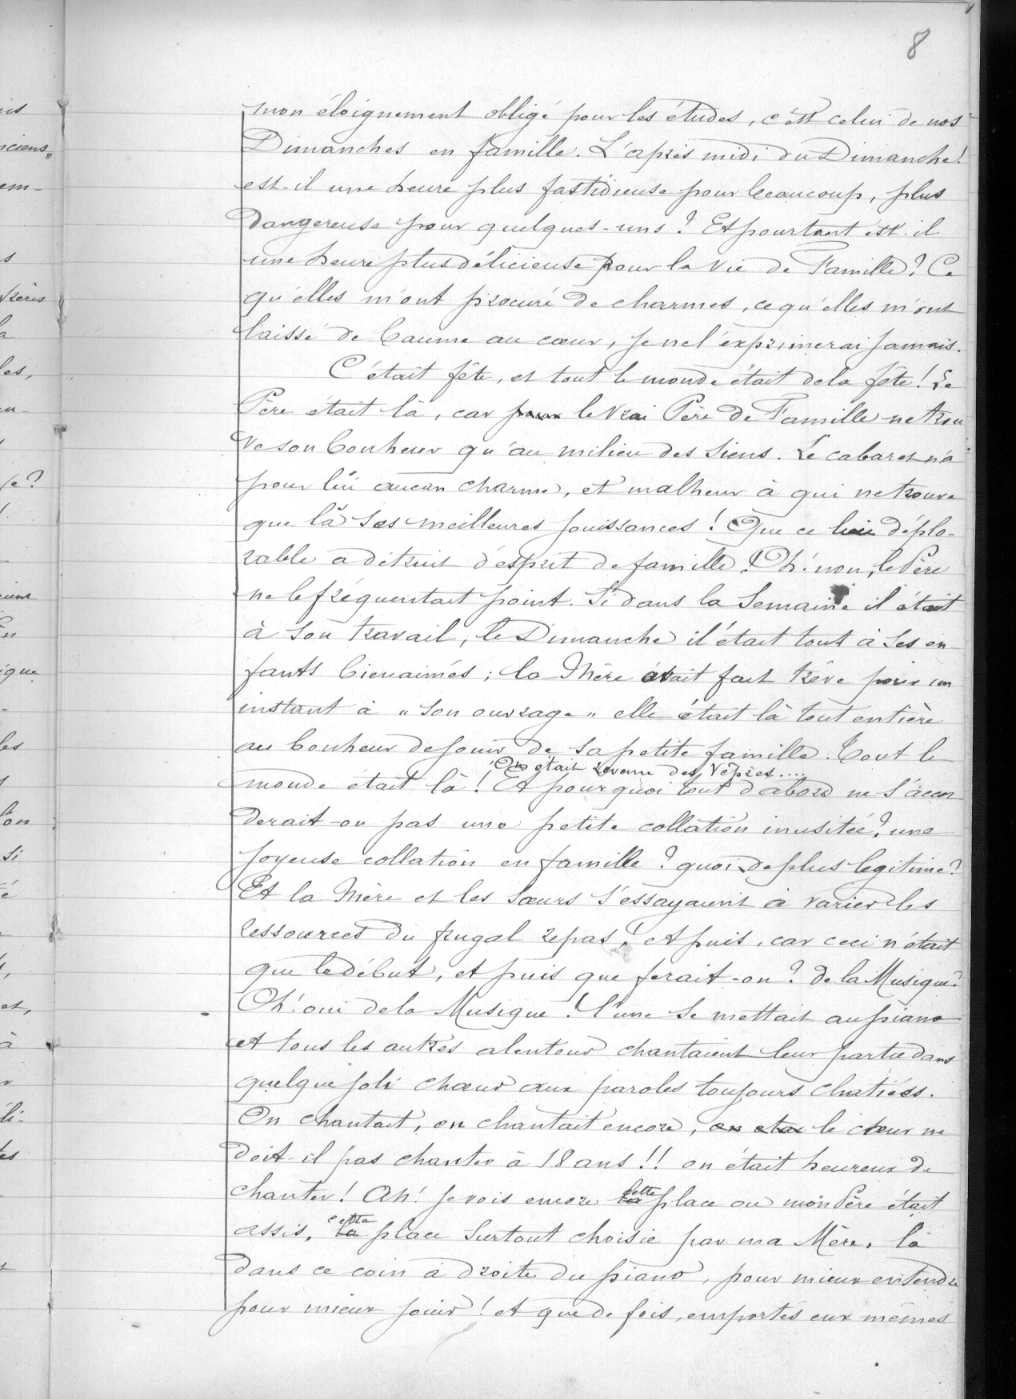 8
mon éloignement obligé pour les études, c'est celui de nos
Dimanches en famille. L'après midi du Dimanche!
est-il une heure plus fastidieuse pour beaucoup, plus
dangereuse pour quelques-uns? Et pourtant est-il
une heure plus délicieuse pour la vie de Famille? Ce
qu'elles m'ont procuré de charmes, ce qu'elles m'ont
laissé de baume au cœur, je ne l'exprimerai jamais.
C'était fête, et tout le monde était de la fête! Le
Père était là, car le vrai Père de Famille ne trou
ve son bonheur qu'au milieu des siens. Le cabaret n'a
pour lui aucun charme, et malheur à qui ne trouve
que là ses meilleures jouissances! Que ce lieu déplo-
rable a détruit d'esprit de famille! Oh! non, le Père
ne le fréquentait point. Si dans la semaine il était
à son travail, le Dimanche il était tout à ses en
fants bienaimés; la Mère avait fait trève pour un
instant à "son ouvrage" elle était là tout entière
au bonheur de jouir de sa petite famille. Tout le
On était revenu des Vêpres....
monde était là! Et pourquoi tout d'abord ne s'accor
derait-on pas une petite collation inusitée? une
joyeuse collation en famille? quoi de plus legitime?
Et la Mère et les sœurs s'essayaient à varier les
ressources du frugal repas! et puis, car ceci n'était
que le début, et puis que ferait-on? de la Musique?
Oh! oui de la Musique! l'une se mettait au piano
et tous les autres alentour chantaient leur partie dans
quelque joli chœur aux paroles toujours chatiées.
On chantait, on chantait encore, le cœur ne
doit-il pas chanter à 18 ans!! on était heureux de
chanter! Ah! je vois encore cette place où mon Père était
assis, cette place surtout choisie par ma Mère, là
dans ce coin à droite du piano, pour mieux entendre
pour mieux jouir! et que de fois, emportés eux mêmes